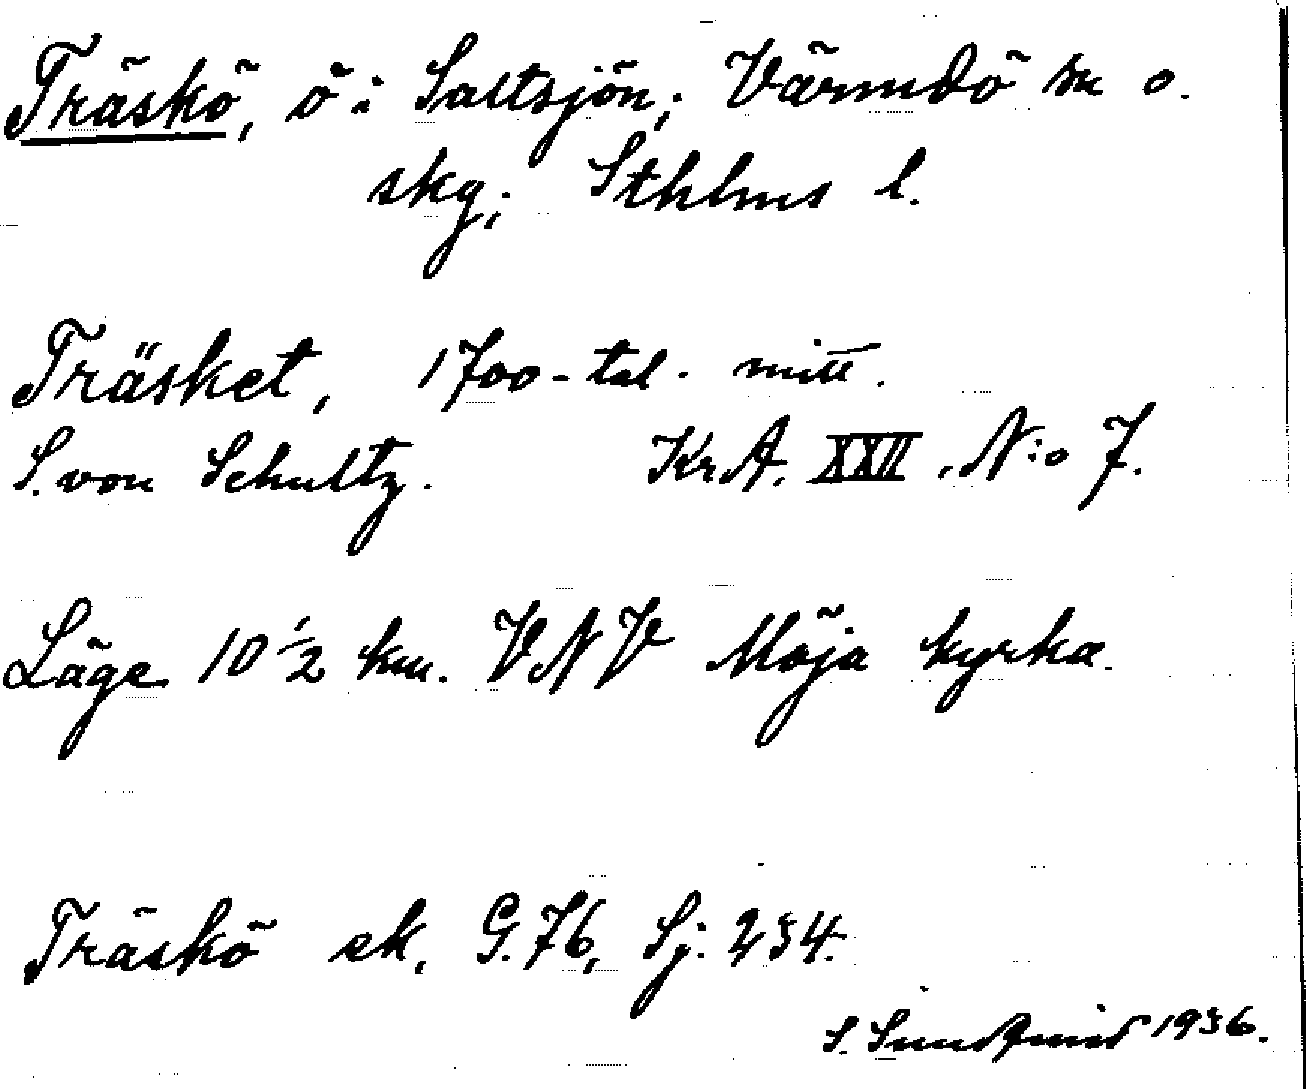 Träskö, ö i Saltsjön; Värmdö sn o.
skg; Sthlms l.
Träsket, 1700-tal. mitt.
S. von Schultz. KrA. XXII, N:o 7.
Läge 10 1/2 km. VNV Möja kyrka.
Träskö ek. G.76, Sj: 234.
S. Sundquist 1936.